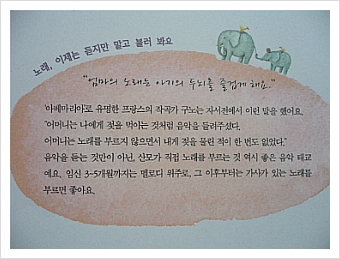 노래, 이제는 듣지만 말고 불러 봐요
"엄마의 노래는 아기의 두뇌를 즐겁게 해요."
'아베마리아'로 유명한 프랑스의 작곡가 구노는 자서전에서 이런 말을 했어요.
"어머니는 나에게 젖을 먹이는 것처럼 음악을 들려주셨다.
어머니는 노래를 부르지 않으면서 내게 젖을 물린 적이 한 번도 없었다."
음악을 듣는 것만이 아닌, 산모가 직접 노래를 부르는 것 역시 좋은 음악 태교
예요. 임신 3~5개월까지는 멜로디 위주로, 그 이후부터는 가사가 있는 노래를
부르면 좋아요.